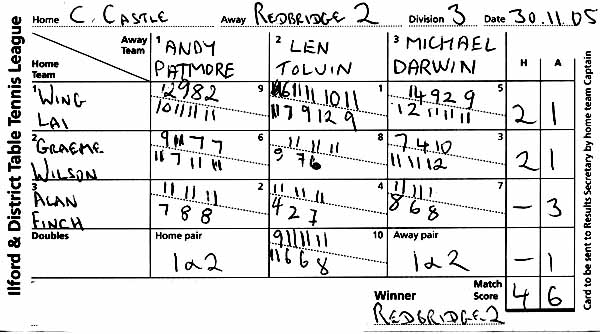 Ilford & District Table Tennis League
Home C. CASTLE Away REDBRIDGE 2 Division 3 Date 30.11.05
Away Team 1 ANDY PATMORE 2 LEN TOLVIN 3 MICHAEL DARWIN H A
Home Team
1 WING LAI 9 1 5 2 1
12 9 8 2
10 11 11 11
11 11 10 11
11 7 9 12 9
14 9 2 9
12 11 11 11
2 GRAEME WILSON 6 8 3 2 1
9 11 7 7
11 7 11 11
11 11 11
9 7 6
7 4 10
11 11 12
3 ALAN FINCH 2 4 7 - 3
11 11 11
7 8 8
11 11 11
4 2 7
11 11 11
8 6 8
Doubles Home pair 10 Away pair
1 & 2 1 & 2 - 1
9 11 11 11
11 6 6 8
Winner Match Score 4 6
REDBRIDGE 2
Card to be sent to Results Secretary by home team Captain